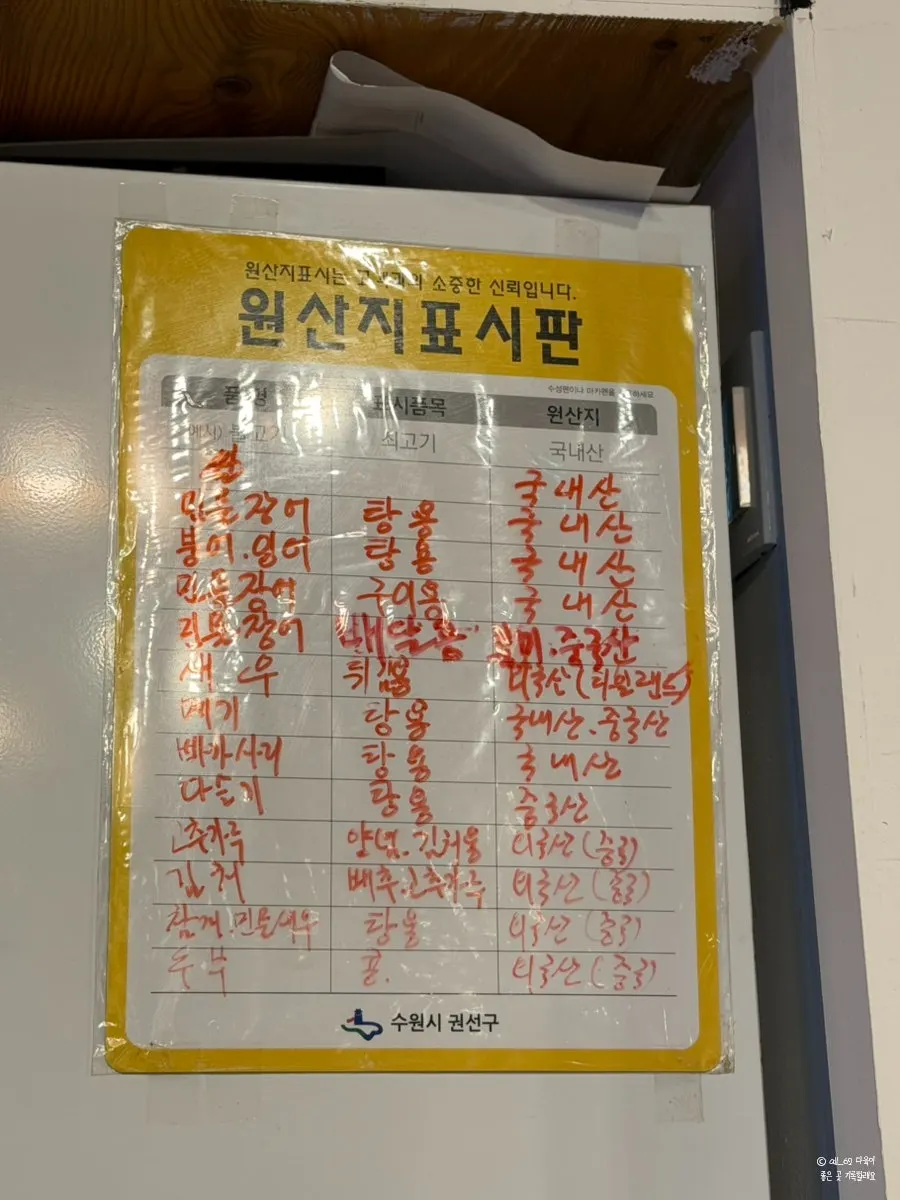 원산지표시는 고객과의 소중한 신뢰입니다.
원산지표시판
수성펜이나 마카펜을 하세요
품명 표시품목 원산지
예시) 불고기 쇠고기 국내산
쌀 국내산
민물장어 탕용 국내산
붕어.잉어 탕용 국내산
민물장어 구이용 국내산
민물장어 중국산
새우 튀김용 외국산
메기 탕용 국내산.중국산
빠가사리 탕용 국내산
다슬기 탕용 중국산
고추가루 양념.김치용 외국산(중국)
김치 배추.고추가루 외국산(중국)
참게.민물새우 탕용 외국산(중국)
두부 콩. 외국산(중국)
수원시 권선구
다육이
좋은 곳 기록할래요